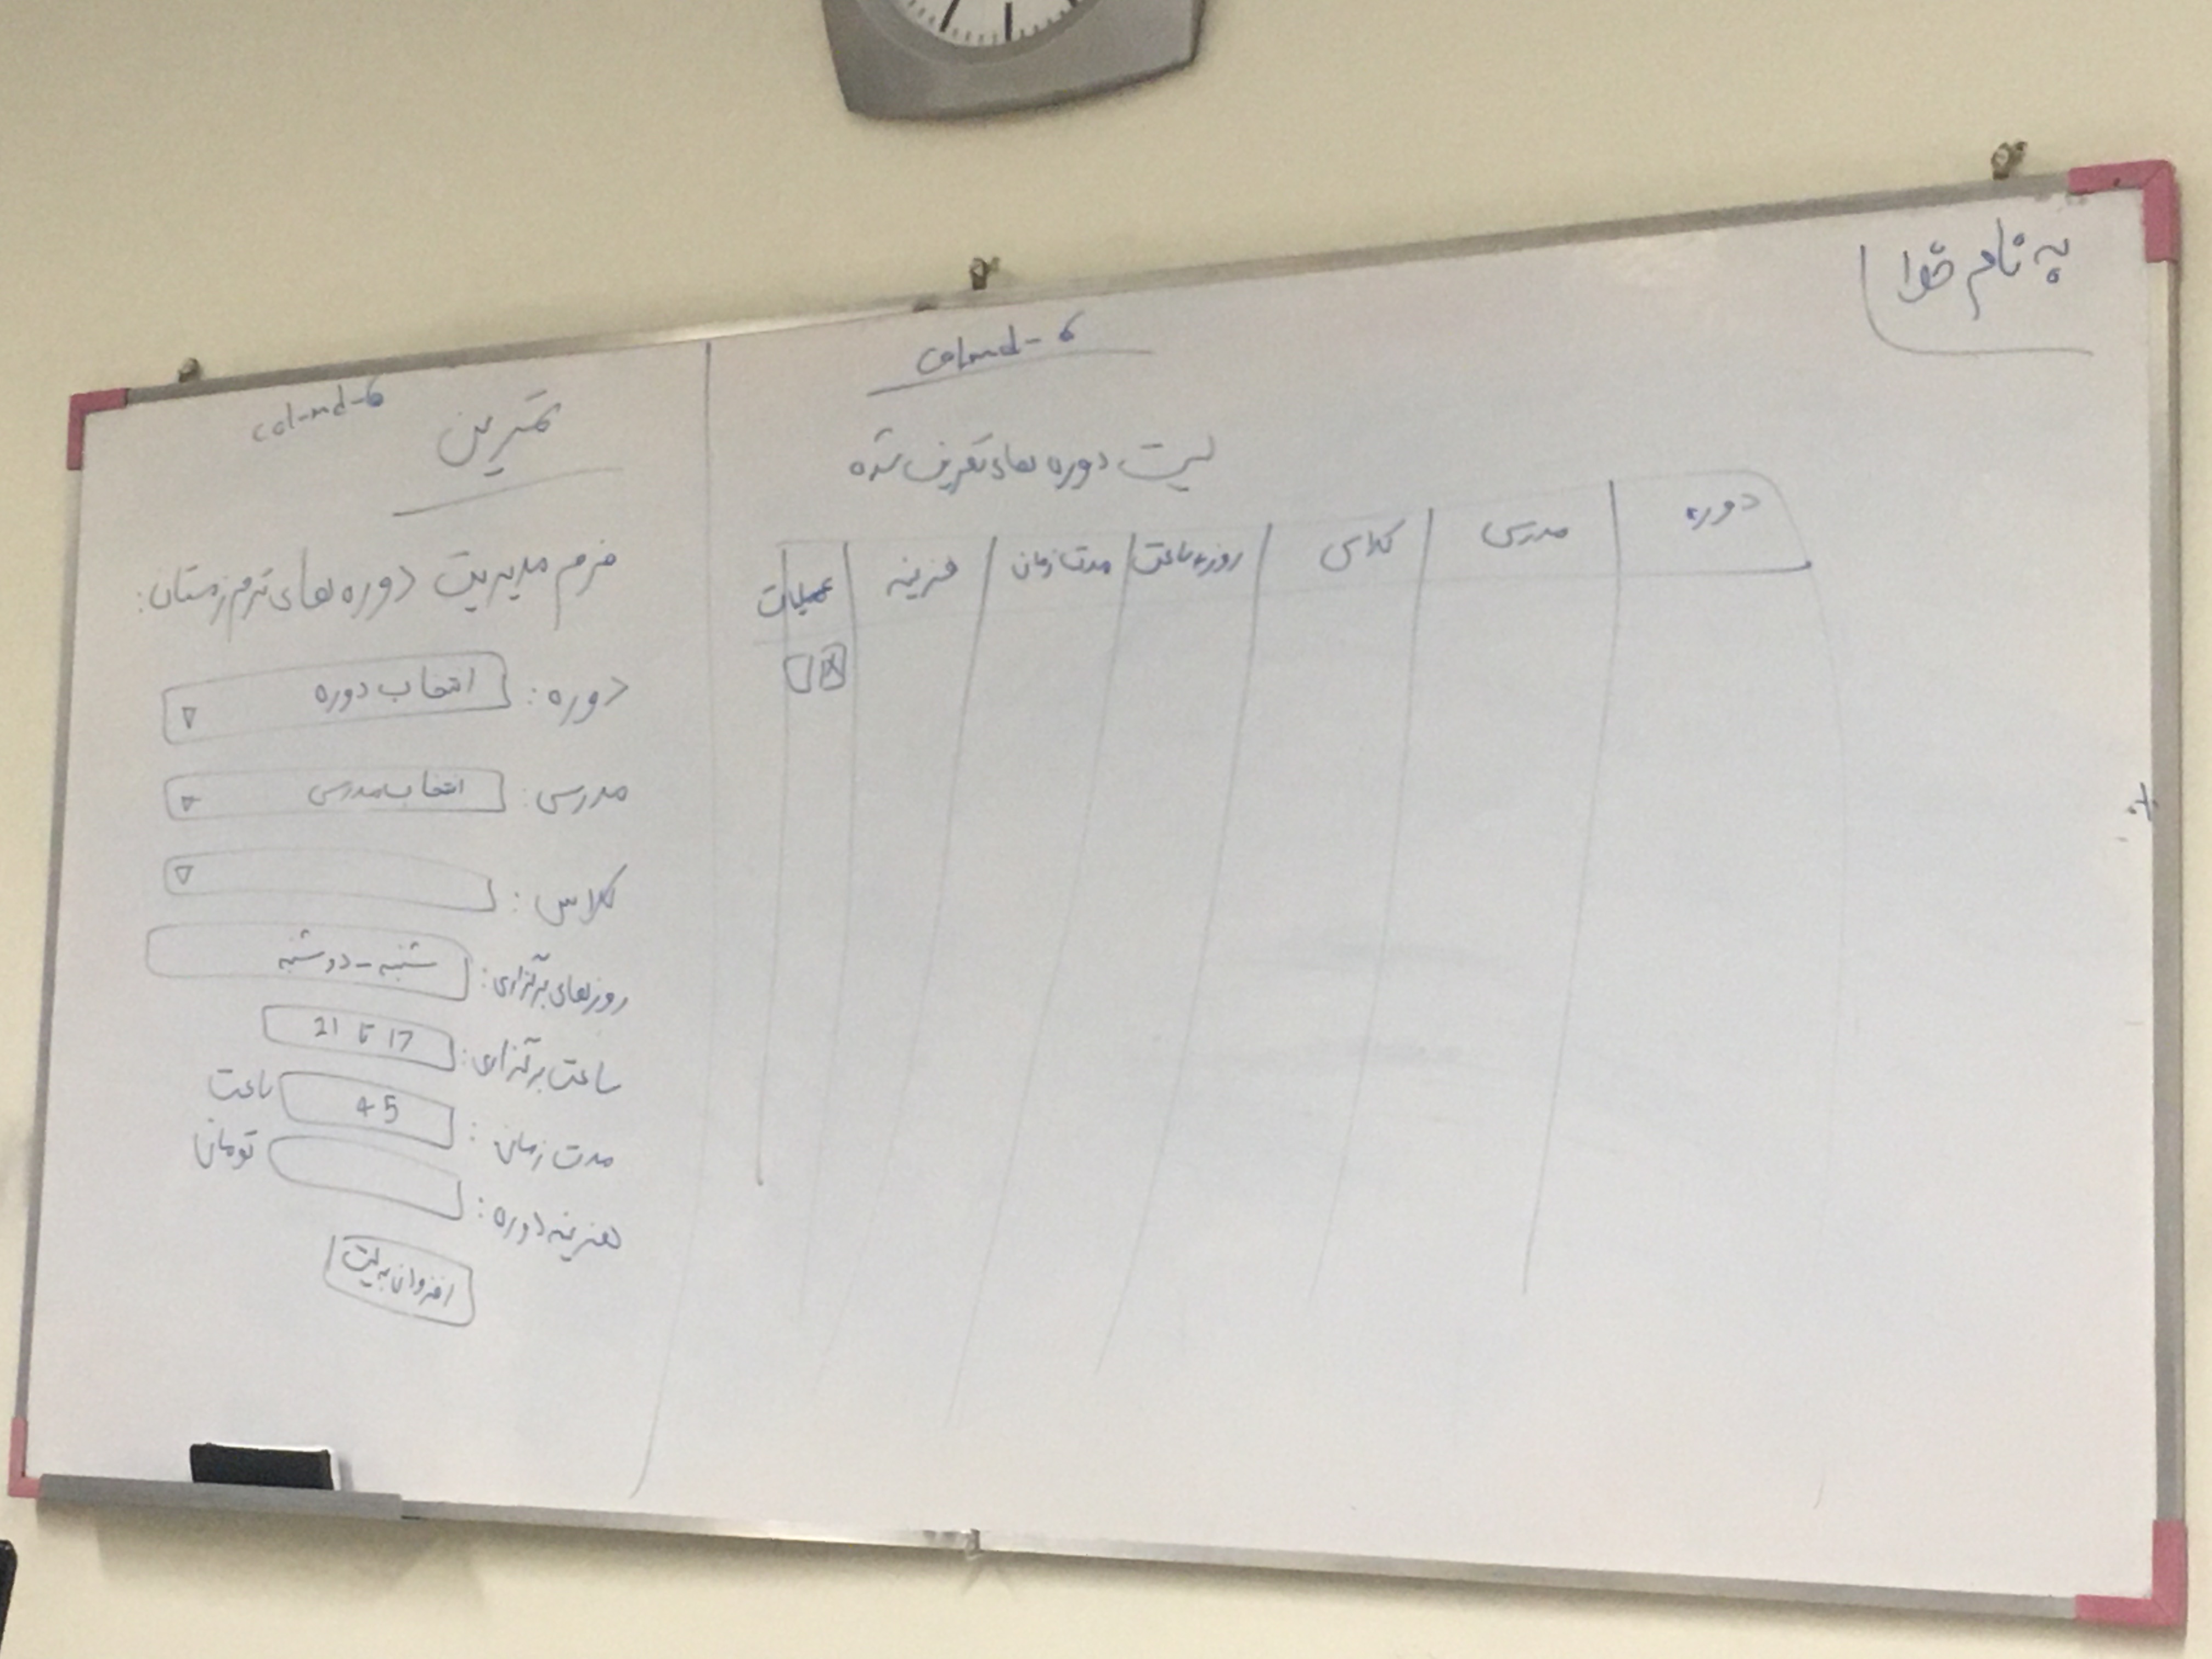 به نام خدا
col-md-6
لیست دوره های تعریف شده
دوره | مدرس | کلاس | روز و ساعت | مدت زمان | هزینه | عملیات
col-md-6
تمرین
فرم مدیریت دوره های ترم زمستان:
دوره: انتخاب دوره
مدرس: انتخاب مدرس
کلاس:
روزهای برگزاری: شنبه - دوشنبه
ساعت برگزاری: 17 تا 21
مدت زمان: 45 ساعت
هزینه دوره: تومان
افزودن به لیست